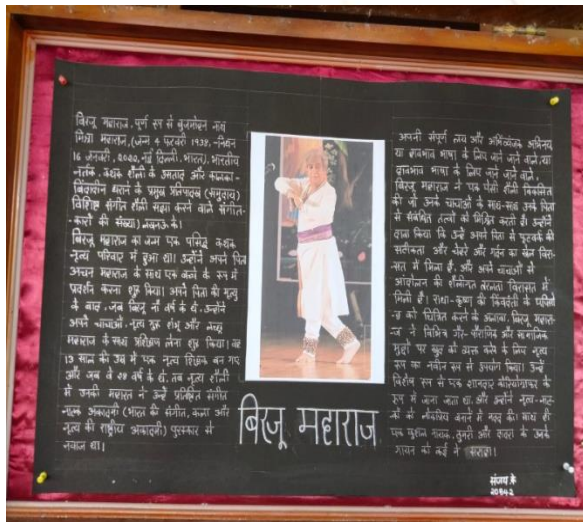 बिरजू महाराज, पूर्ण रूप से बृजमोहन नाथ
मिश्रा महाराज, (जन्म 4 फरवरी 1938, -निधन
16 जनवरी, 2022, नई दिल्ली, भारत), भारतीय
नर्तक, कथक शैली के उस्ताद और कालका-
बिंदादीन घराने के प्रमुख प्रतिपादक (समुदाय)
विशिष्ट संगीत शैली साझा करने वाले संगीत-
-कारों की संख्या) लखनऊ के।
बिरजू महाराज का जन्म एक प्रसिद्ध कथक
नृत्य परिवार में हुआ था। उन्होंने अपने पिता
अच्छन महाराज के साथ एक बच्चे के रूप में
प्रदर्शन करना शुरू किया। अपने पिता की मृत्यु
के बाद, जब बिरजू नौ वर्ष के थे, उन्होंने
अपने चाचाओं, नृत्य गुरु शंभू और लच्छू
महाराज के साथ प्रशिक्षण लेना शुरू किया। वह
13 साल की उम्र में एक नृत्य शिक्षक बन गए
और जब वे २८ वर्ष के थे, तब नृत्य शैली
में उनकी महारत ने उन्हें प्रतिष्ठित संगीत
नाटक अकादमी (भारत की संगीत, कला और
नृत्य की राष्ट्रीय अकादमी) पुरस्कार से
नवाजा था।
अपनी संपूर्ण लय और अभिव्यंजक अभिनय
या हावभाव भाषा के लिए जाने जाने वाले, या
हावभाव भाषा के लिए जाने जाने वाले,
बिरजू महाराज ने एक ऐसी शैली विकसित
की जो उनके चाचाओं के साथ-साथ उनके पिता
से संबंधित तत्वों को मिश्रित करती है। उन्होंने
दावा किया कि उन्हें अपने पिता से फुटवर्क की
सटीकता और चेहरे और गर्दन का खेल विरा-
सत में मिला है, और अपने चाचाओं से
आंदोलन की शैलीगत तरलता विरासत में
मिली है। राधा-कृष्ण की किंवदंती के
को चित्रित करने के अलावा, बिरजू महारा-
ज ने विभिन्न गैर-पौराणिक और सामाजिक
मुद्दों पर खुद को व्यक्त करने के लिए नृत्य
रूप का नवीन रूप से उपयोग किया। उन्हें
विशेष रूप से एक शानदार कोरियोग्राफर के
रूप में जाना जाता था, और उन्होंने नृत्य-नाट-
कों को लोकप्रिय बनाने में मदद की। साथ ही
एक कुशल गायक, ठुमरी और दादरा के उनके
गायन को कई ने सराहा।
बिरजू महाराज
संजय के
20842